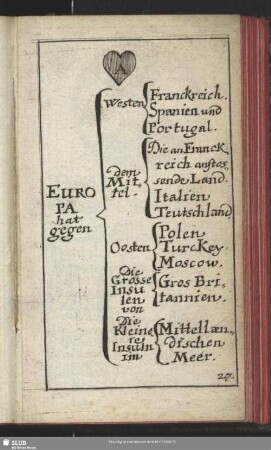 A
EURO
PA
hat
gegen
Westen
Franckreich.
Spanien und
Portugal.
dem
Mit,
tel.
Die an Franck
reich anstos
sende Land.
Italien
Teutschland
Oosten
Polen
Turckey.
Moscow.
Die
Grosse
Insu
len
von
Gros Bri,
tannien.
Die
Kleine
re
Insuln
im
Mittellæn,
dischen
Meer.
27.
SLUB